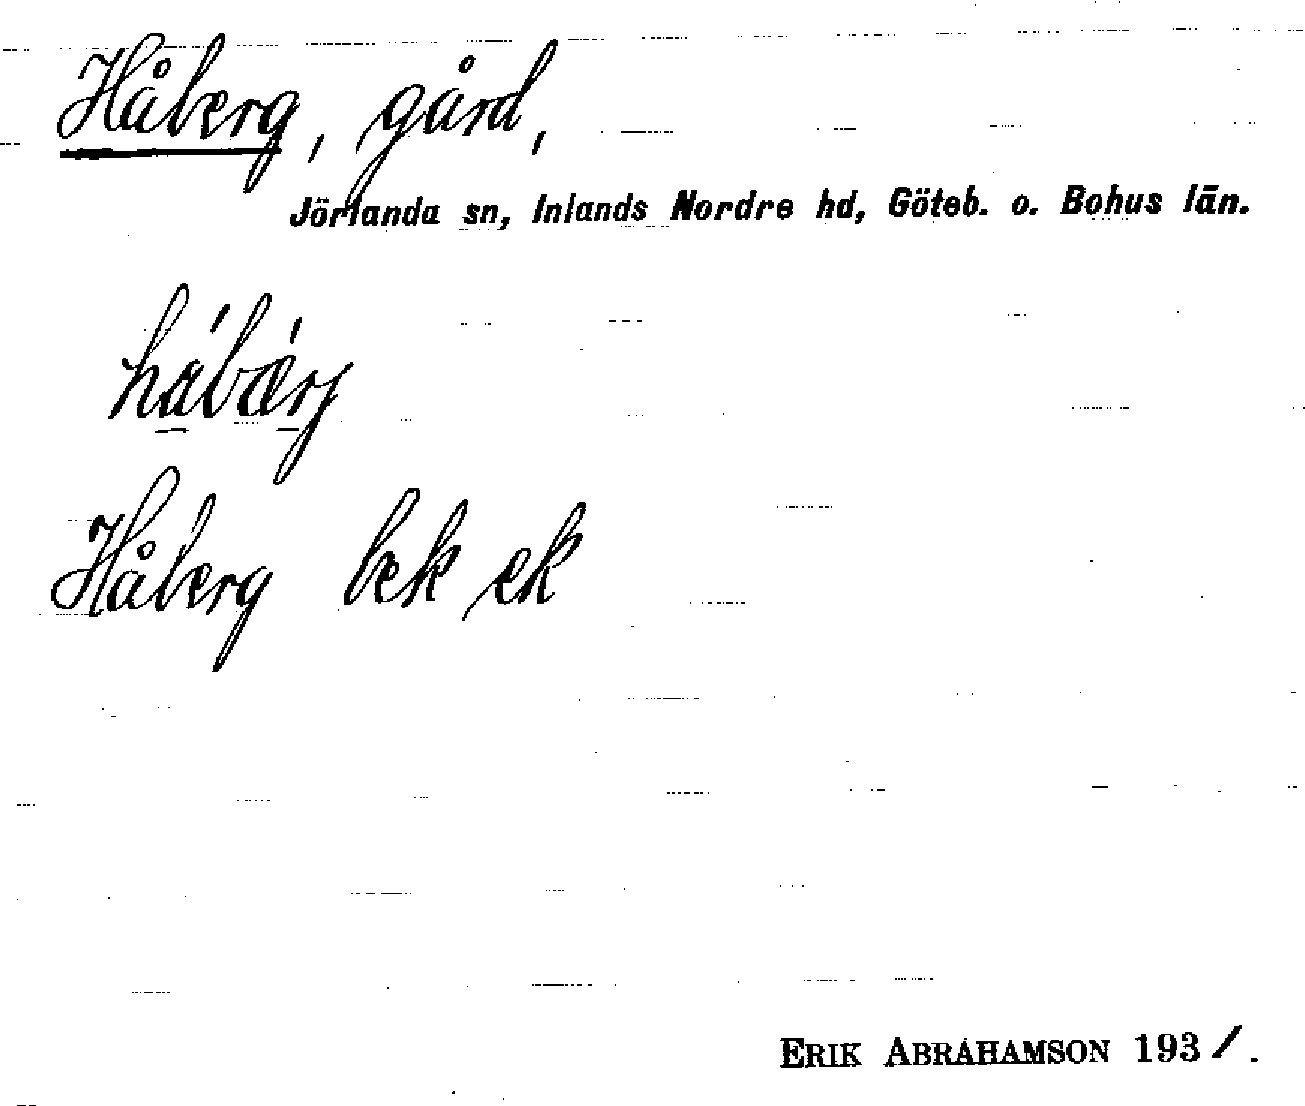 Håberg, gård,
Jörlanda sn, Inlands Nordre hd, Göteb. o. Bohus län.
hábǽrj
Håberg bek ek
ERIK ABRAHAMSON 1931.